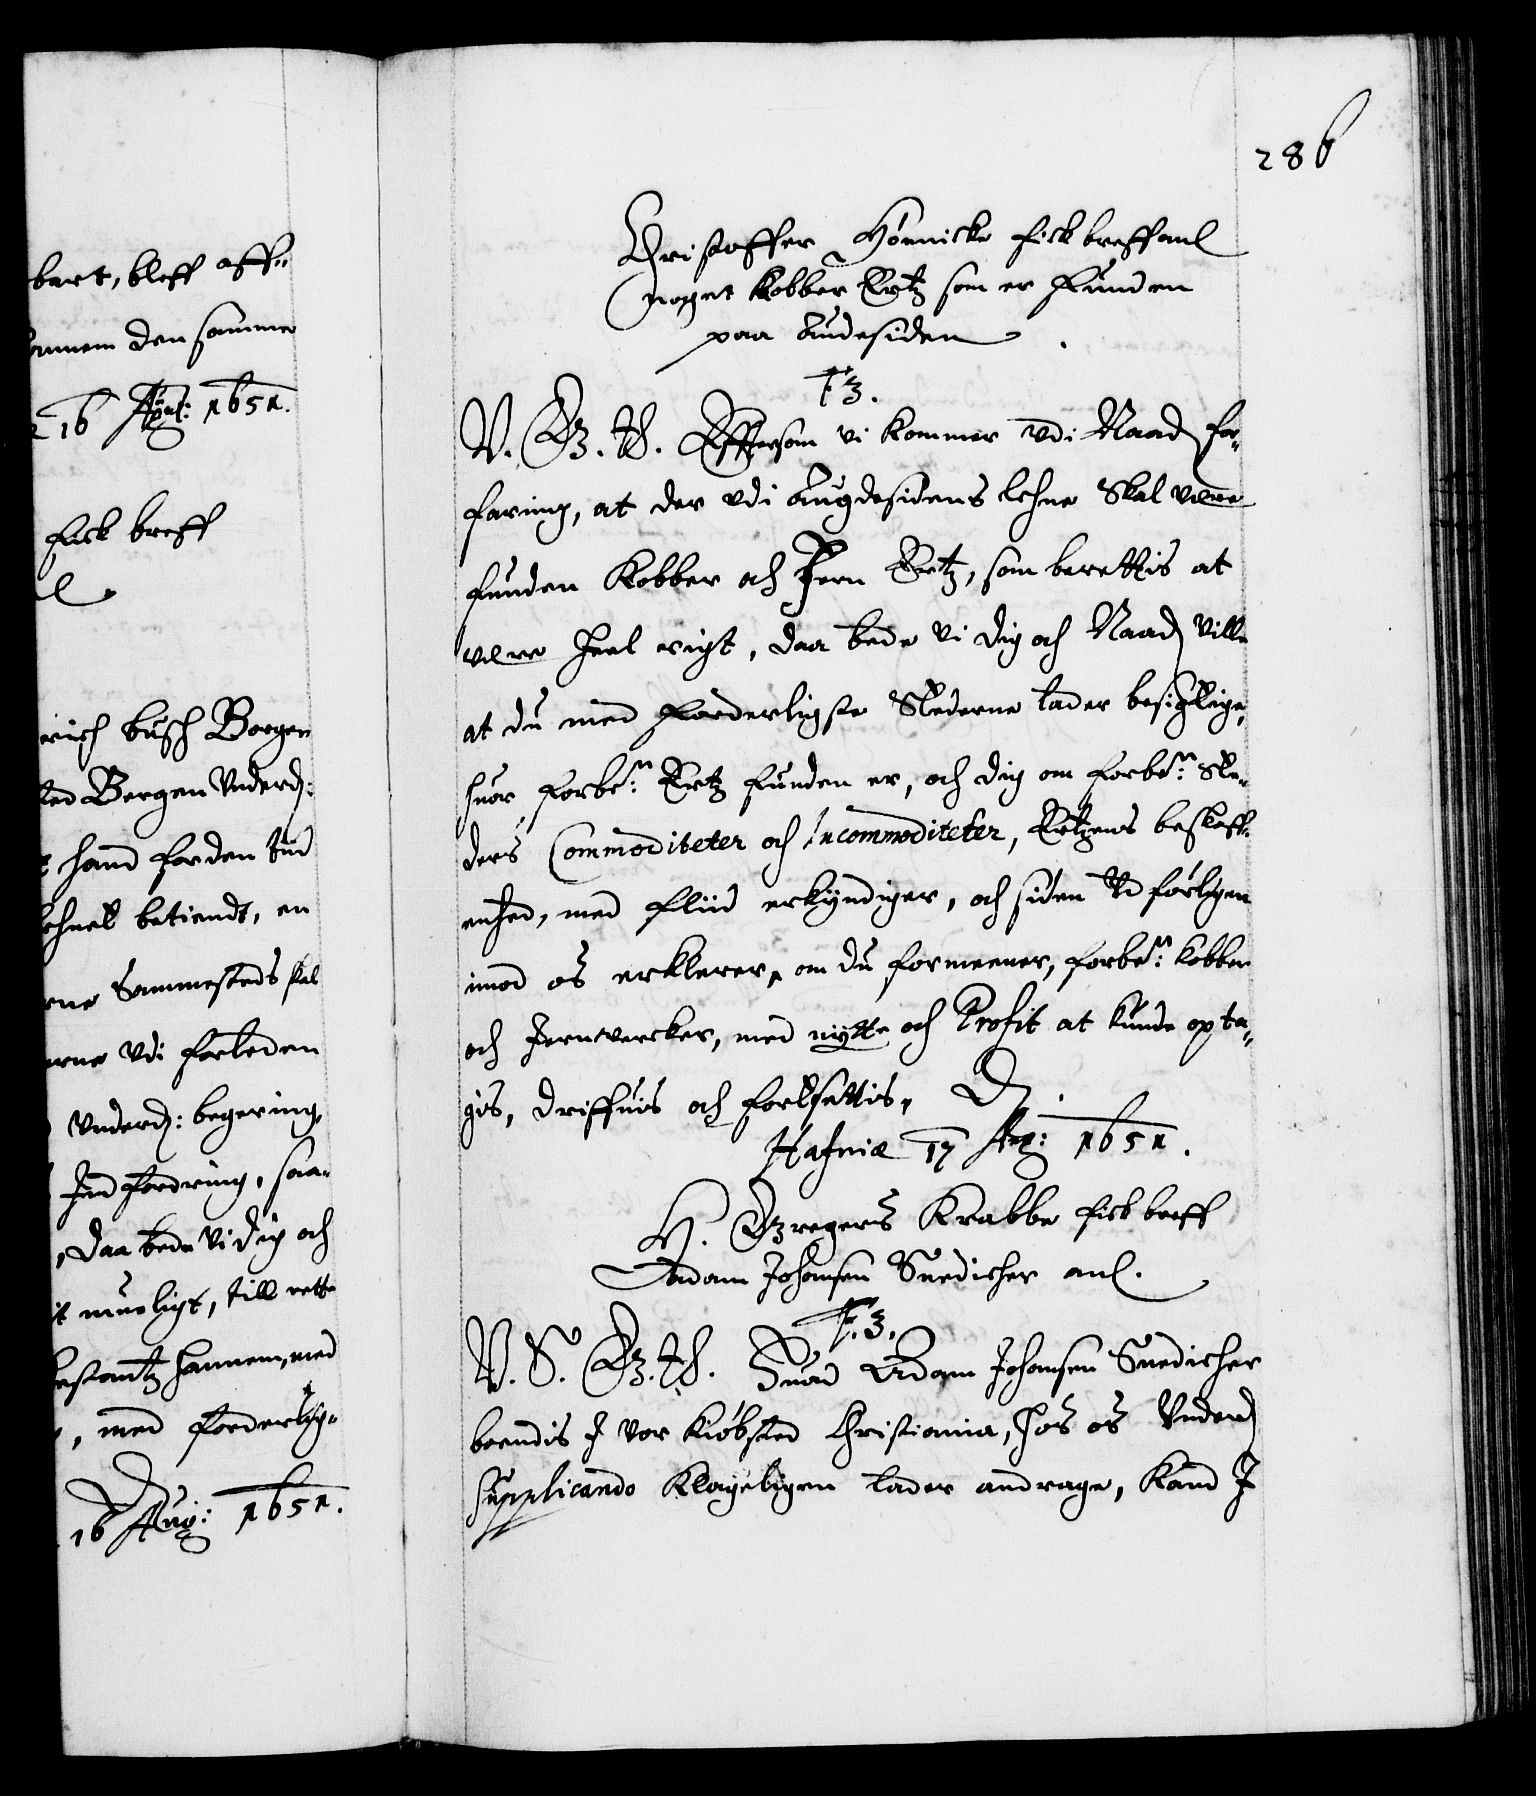 bart, bleff aff-
den samme
16 Aug: 1651.
fick breff
l
busch Borger
Bergen Underd:
hand for den tiid
betiendt, en
Sammesteds skal
udi forleden
Underd: begering,
Indfordring, saa-
, daa bede Vi dig och
mueligt, till rette
hannem, med
, med forderlig-
16 Aug: 1651.
286
Christoffer Hönnicke fick breff anl
noget Kobber Ertz som er funden
paa Budesiden.
F3.
V. G. th. Effttersom vi kommer udi Naad for-
faring, at der udi Bugdesidens lehne Skal være
funden Kobber och Jern Ertz, som berettis at
være heel rigt, daa bede Vi dig och Naad Ville
at du med forderligste Stederne lader besigtige,
huor forbe:n Ertz funden er, och dig om forbe:n Ste-
ders Commoditeter och Incommoditeter, Ertzens beskaff-
enhed, med fliid erkyndiger, och siden Ud förligen
imod os erklerer, om du formeener, forbe:n Kobber
och Jernvercker, med nytte och Profit at kunde opta-
gis, driffuis och fortsettis. D.
Hafniæ 17 Aug: 1651.
H. Gregers Krabbe fick breff
Adam Johansen Snedicher anl.
F.3.
V. S. G. th. Huad Adam Johansen Snedicher
boendis I vor kiöbsted Christiania, hos os Underd
supplicando Klageligen lader andrage, Kand I